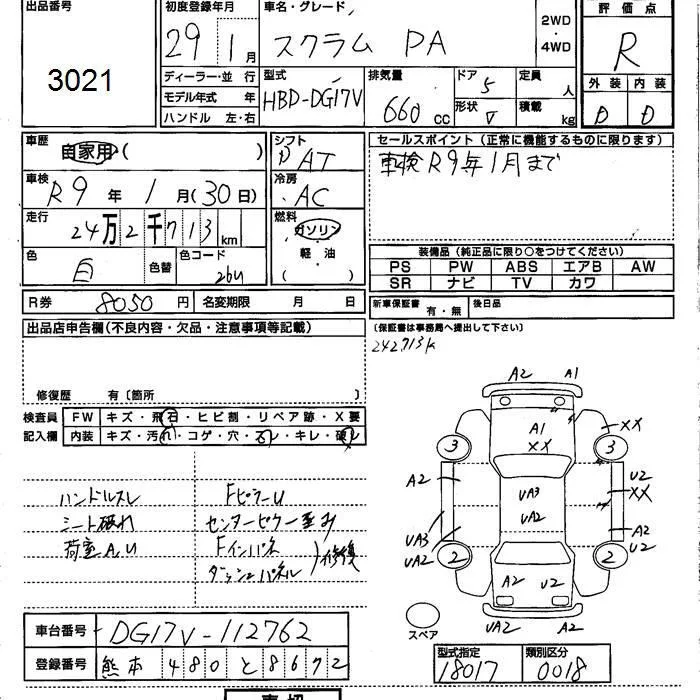 出品番号
3021
初度登録年月
29 1月
車名・グレード
スクラム PA
2WD
・
4WD
評価点
R
外装 内装
D D
ディーラー・並行
モデル年式 年
ハンドル 左・右
型式
HBD-DG17V
排気量
660 cc
ドア 5
形状 V
定員 人
積載 kg
車歴
自家用 ( )
シフト
AT
車検
R9年 1月(30日)
冷房
AC
走行
24万2千713km
燃料
ガソリン
軽油
( )
色
白
色替
色コード
26U
セールスポイント(正常に機能するものに限ります)
車検R9年1月まで
装備品(純正品に限り○をつけてください)
PS PW ABS エアB AW
SR ナビ TV カワ
R券 8050円 名変期限 月 日
新車保証書 有・無 後日品
(保証書は事務局へ提出して下さい)
242713k
出品店申告欄(不良内容・欠品・注意事項等記載)
修復歴 有〔箇所 〕
検査員 FW キズ・飛石・ヒビ割・リペア跡・X要
記入欄 内装 キズ・汚れ・コゲ・穴・スレ・キレ・破レ
ハンドルスレ
シート破れ
荷室A,U
FピラーU
センターピラー歪み
Fインパネ
ダッシュパネル
修復
A2 A1
A1
XX
XX
3 3
A2
UA3
UA2
U2
XX
UA3
UA2
A2
U2
2 2
A2 U2
UA2 A2
スペア
車台番号 DG17V-112762
登録番号 熊本 480 と 8672
型式指定 類別区分
18017 0018